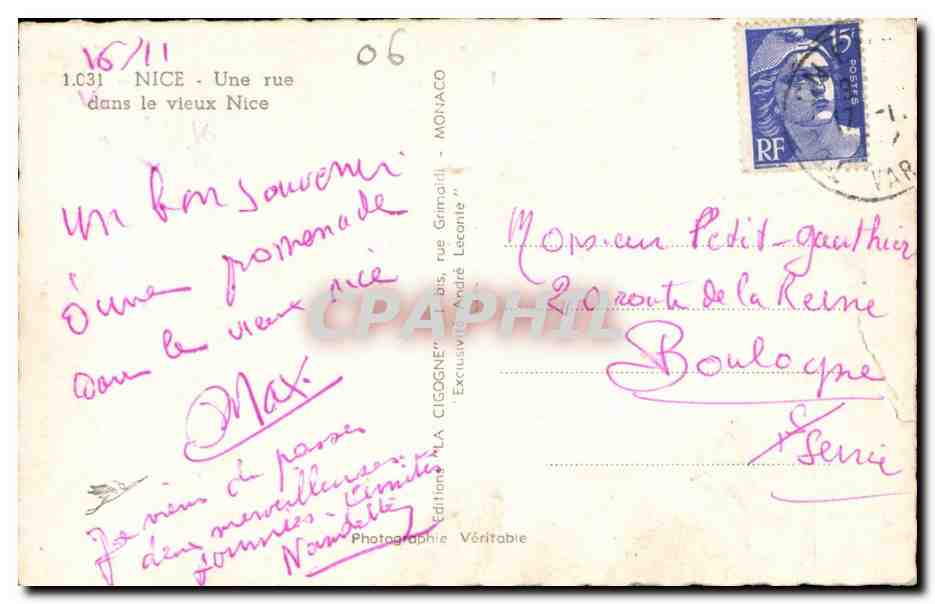 16/11
06
1.031 NICE - Une rue
dans le vieux Nice
Un bon souvenir
d'une promenade
dans le vieux nice
Max.
Je viens de passer
deux merveilleuses
journées - Amitiés
Nandette
Editions "LA CIGOGNE" 1 bis, rue Grimaldi - MONACO
"Exclusivité André Leconte"
Photographie Véritable
15F
POSTES
RF
VAR
Monsieur Petit-gauthier
20 route de la Reine
Boulogne
s/ Seine
CPAPHIL